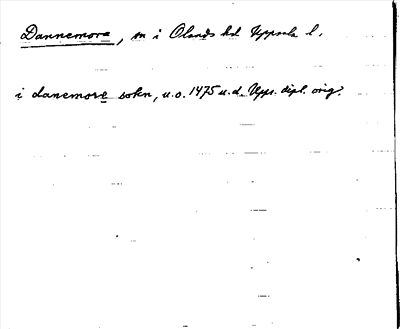 Dannemora, sn i Olands hd Uppsala l.
i danemore sokn, u.o. 1475 u.d. Upps. dipl. orig.